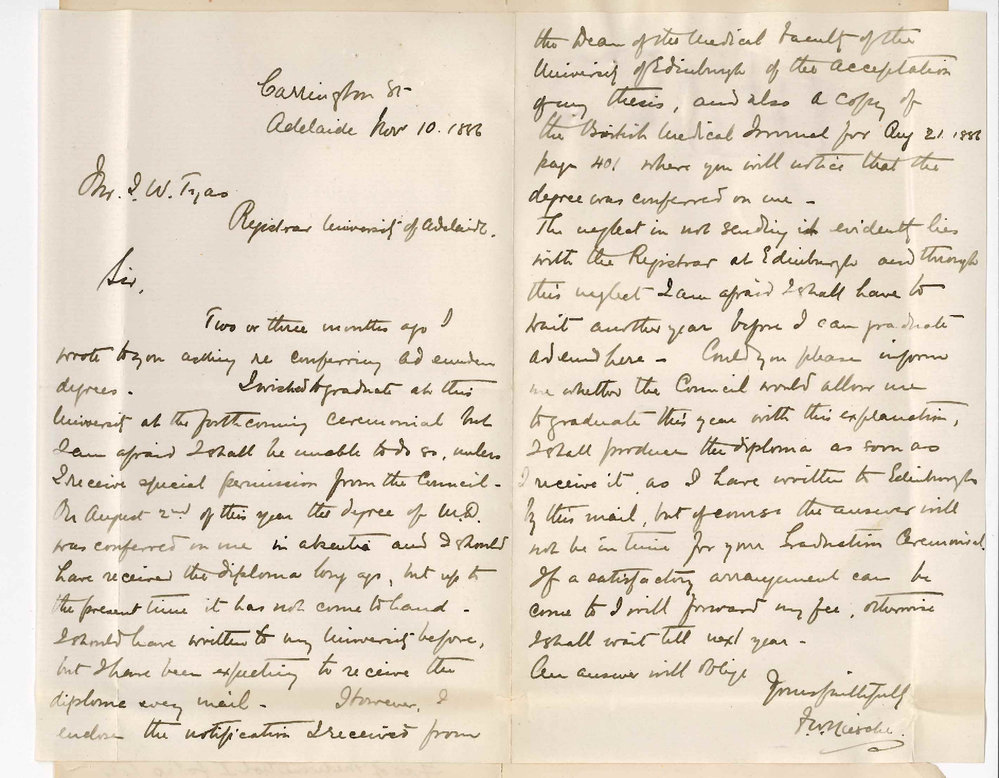 Carrington St-
Adelaide Nov 10. 1886
Mr. J. W. Tyas
Registrar University of Adelaide.
Sir,
Two or three months ago I
wrote to you asking re conferring ad eundem
degrees. I wished to graduate at this
University at the forthcoming ceremonial but
I am afraid I shall be unable to do so, unless
I receive special permission from the Council -
On August 2nd of this year the degree of M.D.
was conferred on me in absentia and I should
have received the diploma long ago, but up to
the present time it has not come to hand -
I should have written to my University before,
but I have been expecting to receive the
diploma every mail - However, I
enclose the notification I received from
the Dean of the Medical Faculty of the
University of Edinburgh of the acceptation
of my thesis, and also a copy of
the British Medical Journal for Aug 21. 1886
page 401 where you will notice that the
degree was conferred on me -
The neglect in not sending it evidently lies
with the Registrar at Edinburgh and through
this neglect I am afraid I shall have to
wait another year before I can graduate
ad eund here - Could you please inform
me whether the Council would allow me
to graduate this year with this explanation,
I shall produce the diploma as soon as
I receive it, as I have written to Edinburgh
by this mail, but of course the answer will
not be in time for your Graduation Ceremonial.
If a satisfactory arrangement can be
come to I will forward my fee, otherwise
I shall wait till next year -
An answer will oblige
Yours faithfully
F. W. Niesche.